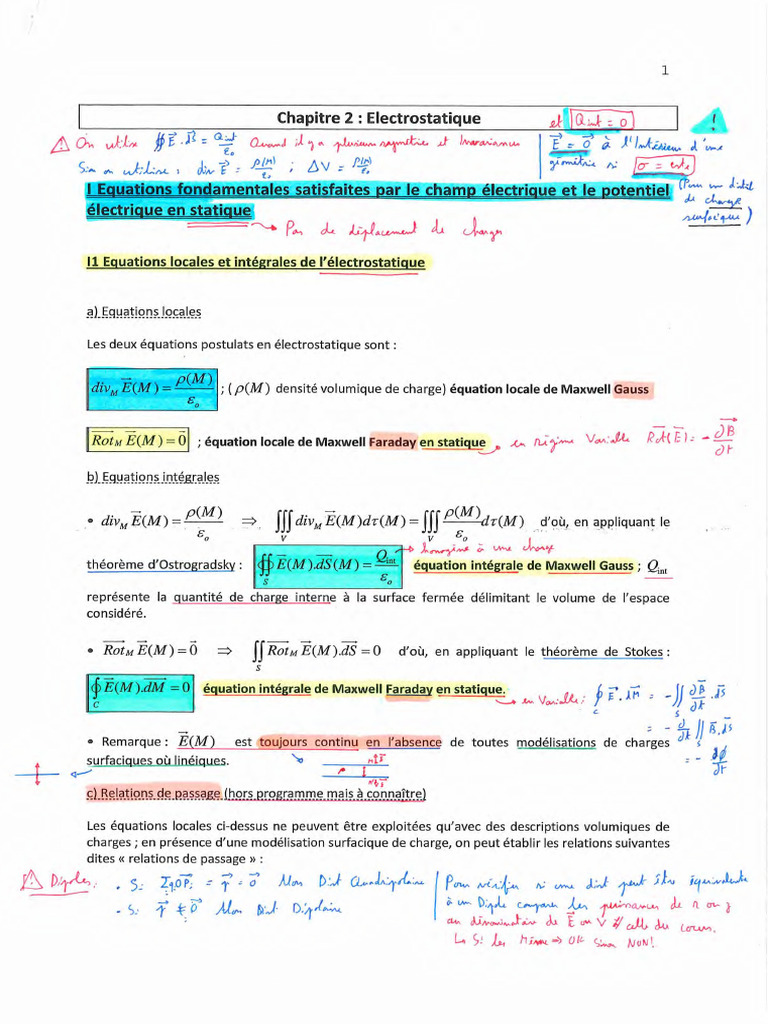 1
Chapitre 2 : Electrostatique
et Qint = 0
!
On utilise ∯ E⃗.dS⃗ = Qint/ε₀ Quand il y a plusieurs symétries et Invariances
Sinon utilise : div E⃗ = ρ(M)/ε₀ ; ΔV = ρ(M)/ε₀
E⃗ = 0⃗ à l'Intérieur d'une
géométrie si σ = cste
(Pour un distrib
de charge
surfacique)
I Equations fondamentales satisfaites par le champ électrique et le potentiel
électrique en statique
Pas de déplacement de charges
I1 Equations locales et intégrales de l'électrostatique
a) Equations locales
Les deux équations postulats en électrostatique sont :
div_M E⃗(M) = ρ(M)/ε_o ; ( ρ(M) densité volumique de charge) équation locale de Maxwell Gauss
Rot⃗_M E⃗(M) = 0⃗ ; équation locale de Maxwell Faraday en statique en régime Variable Rot⃗(E⃗) = - ∂B⃗/∂t
b) Equations intégrales
• div_M E⃗(M) = ρ(M)/ε_o ⇒ ∭_V div_M E⃗(M)dτ(M) = ∭_V ρ(M)/ε_o dτ(M) d'où, en appliquant le
homogène à une charge
théorème d'Ostrogradsky : ∯_S E⃗(M).dS⃗(M) = Q_int/ε_o équation intégrale de Maxwell Gauss ; Q_int
représente la quantité de charge interne à la surface fermée délimitant le volume de l'espace
considéré.
• Rot⃗_M E⃗(M) = 0⃗ ⇒ ∬_S Rot⃗_M E⃗(M).dS⃗ = 0 d'où, en appliquant le théorème de Stokes :
∮_C E⃗(M).dM⃗ = 0 équation intégrale de Maxwell Faraday en statique.
en Variable ; ∮_C E⃗.dM⃗ = - ∬_S ∂B⃗/∂t .dS⃗
= - ∂/∂t ∬_S B⃗.dS⃗
= - ∂ϕ/∂t
• Remarque : E⃗(M) est toujours continu en l'absence de toutes modélisations de charges
surfaciques où linéiques.
c) Relations de passage (hors programme mais à connaître)
Les équations locales ci-dessus ne peuvent être exploitées qu'avec des descriptions volumiques de
charges ; en présence d'une modélisation surfacique de charge, on peut établir les relations suivantes
dites « relations de passage » :
! Dipoles.
• Si Σq_i OP⃗_i = p⃗ = 0⃗ Alors Dist Quadripolaire
• Si p⃗ ≠ 0⃗ Alors Dist Dipolaire
Pour vérifier si une dist peut être équivalente
à un Dipole comparer les puissances de r ou z
au dénominateur de E⃗ ou V // celle du cours.
Si les Même ⇒ OK Sinon NON!